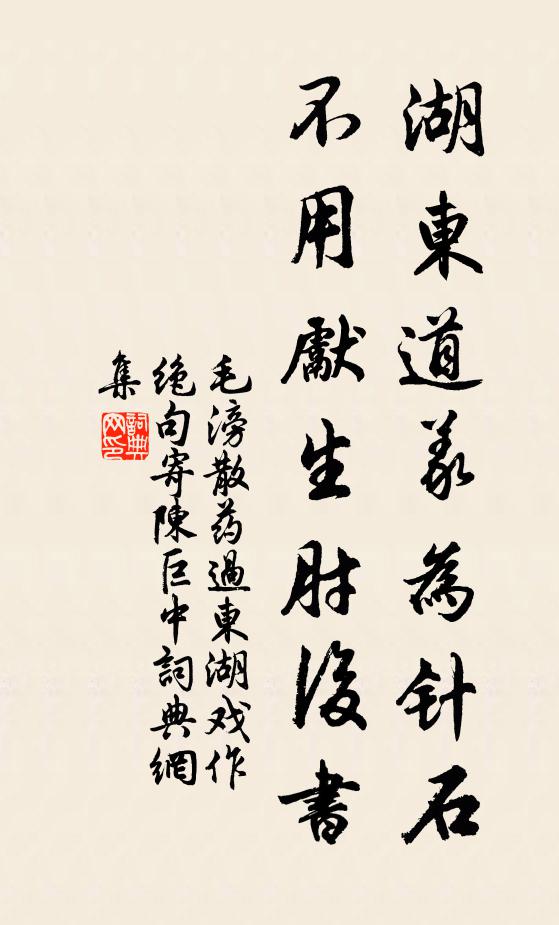 湖東道義為针石
不用獻生肘後書
毛滂散药過東湖戏作
绝句寄陳巨中詞典網
集
詞典
网印